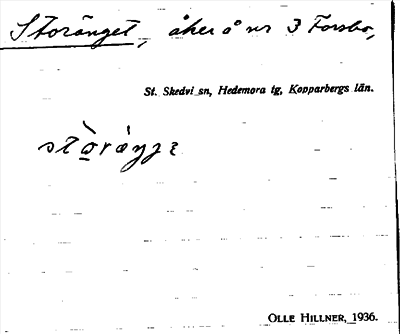 Storänget, åker å nr 3 Forsbo,
St. Skedvi sn, Hedemora tg, Kopparbergs län.
OLLE HILLNER, 1936.